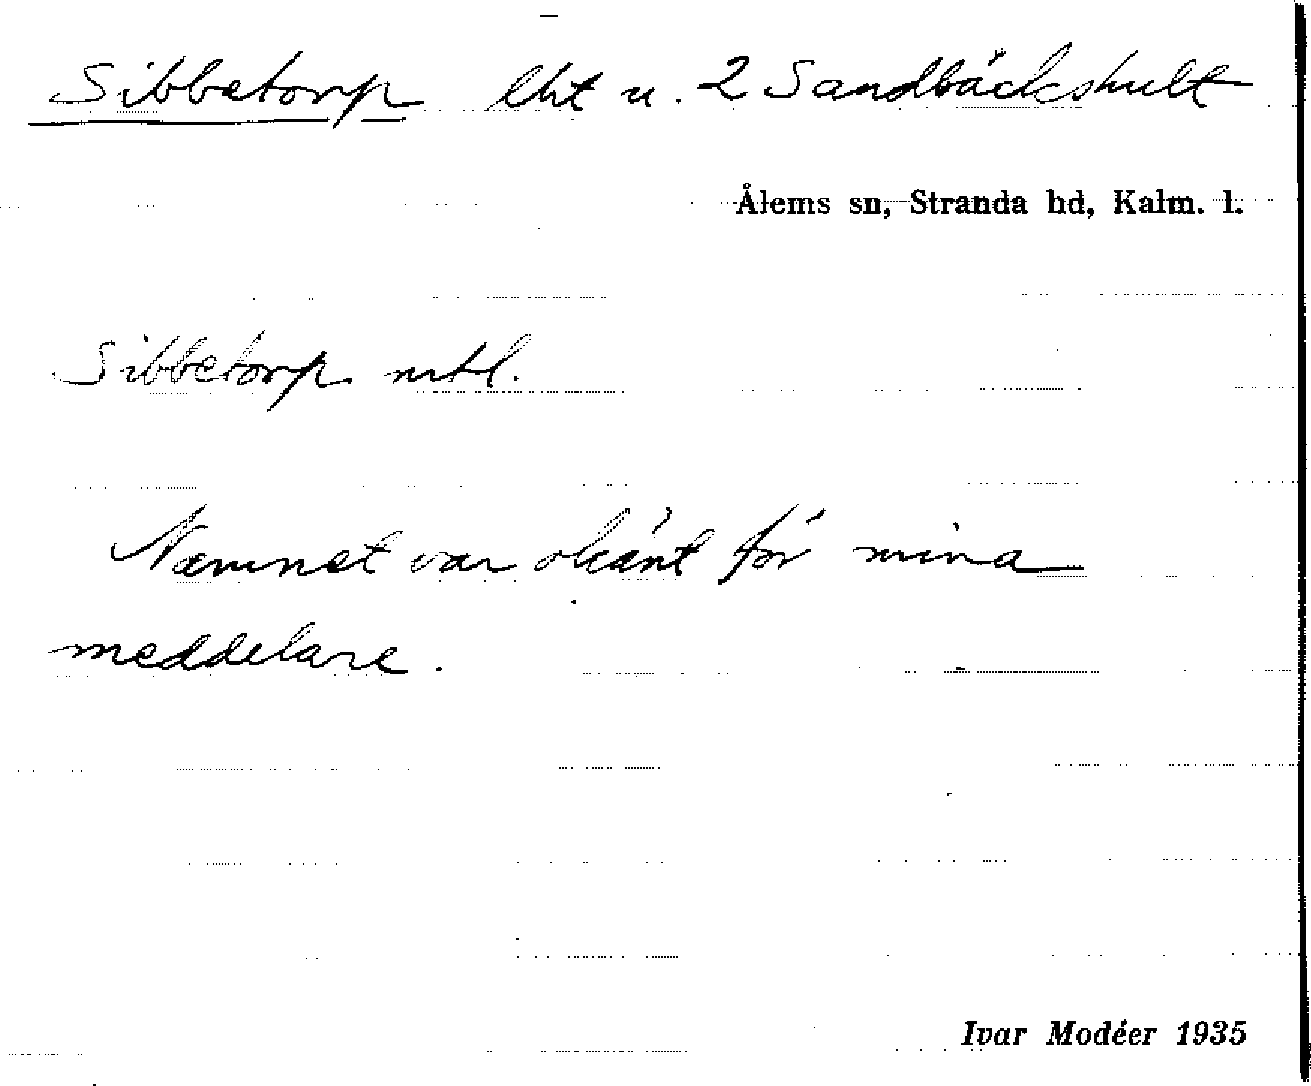 Sibbetorp lht u. 2 Sandbäckshult
Ålems sn, Stranda hd, Kalm. l.
Sibbetorp mtl.
Namnet var okänt för mina
meddelare.
Ivar Modéer 1935